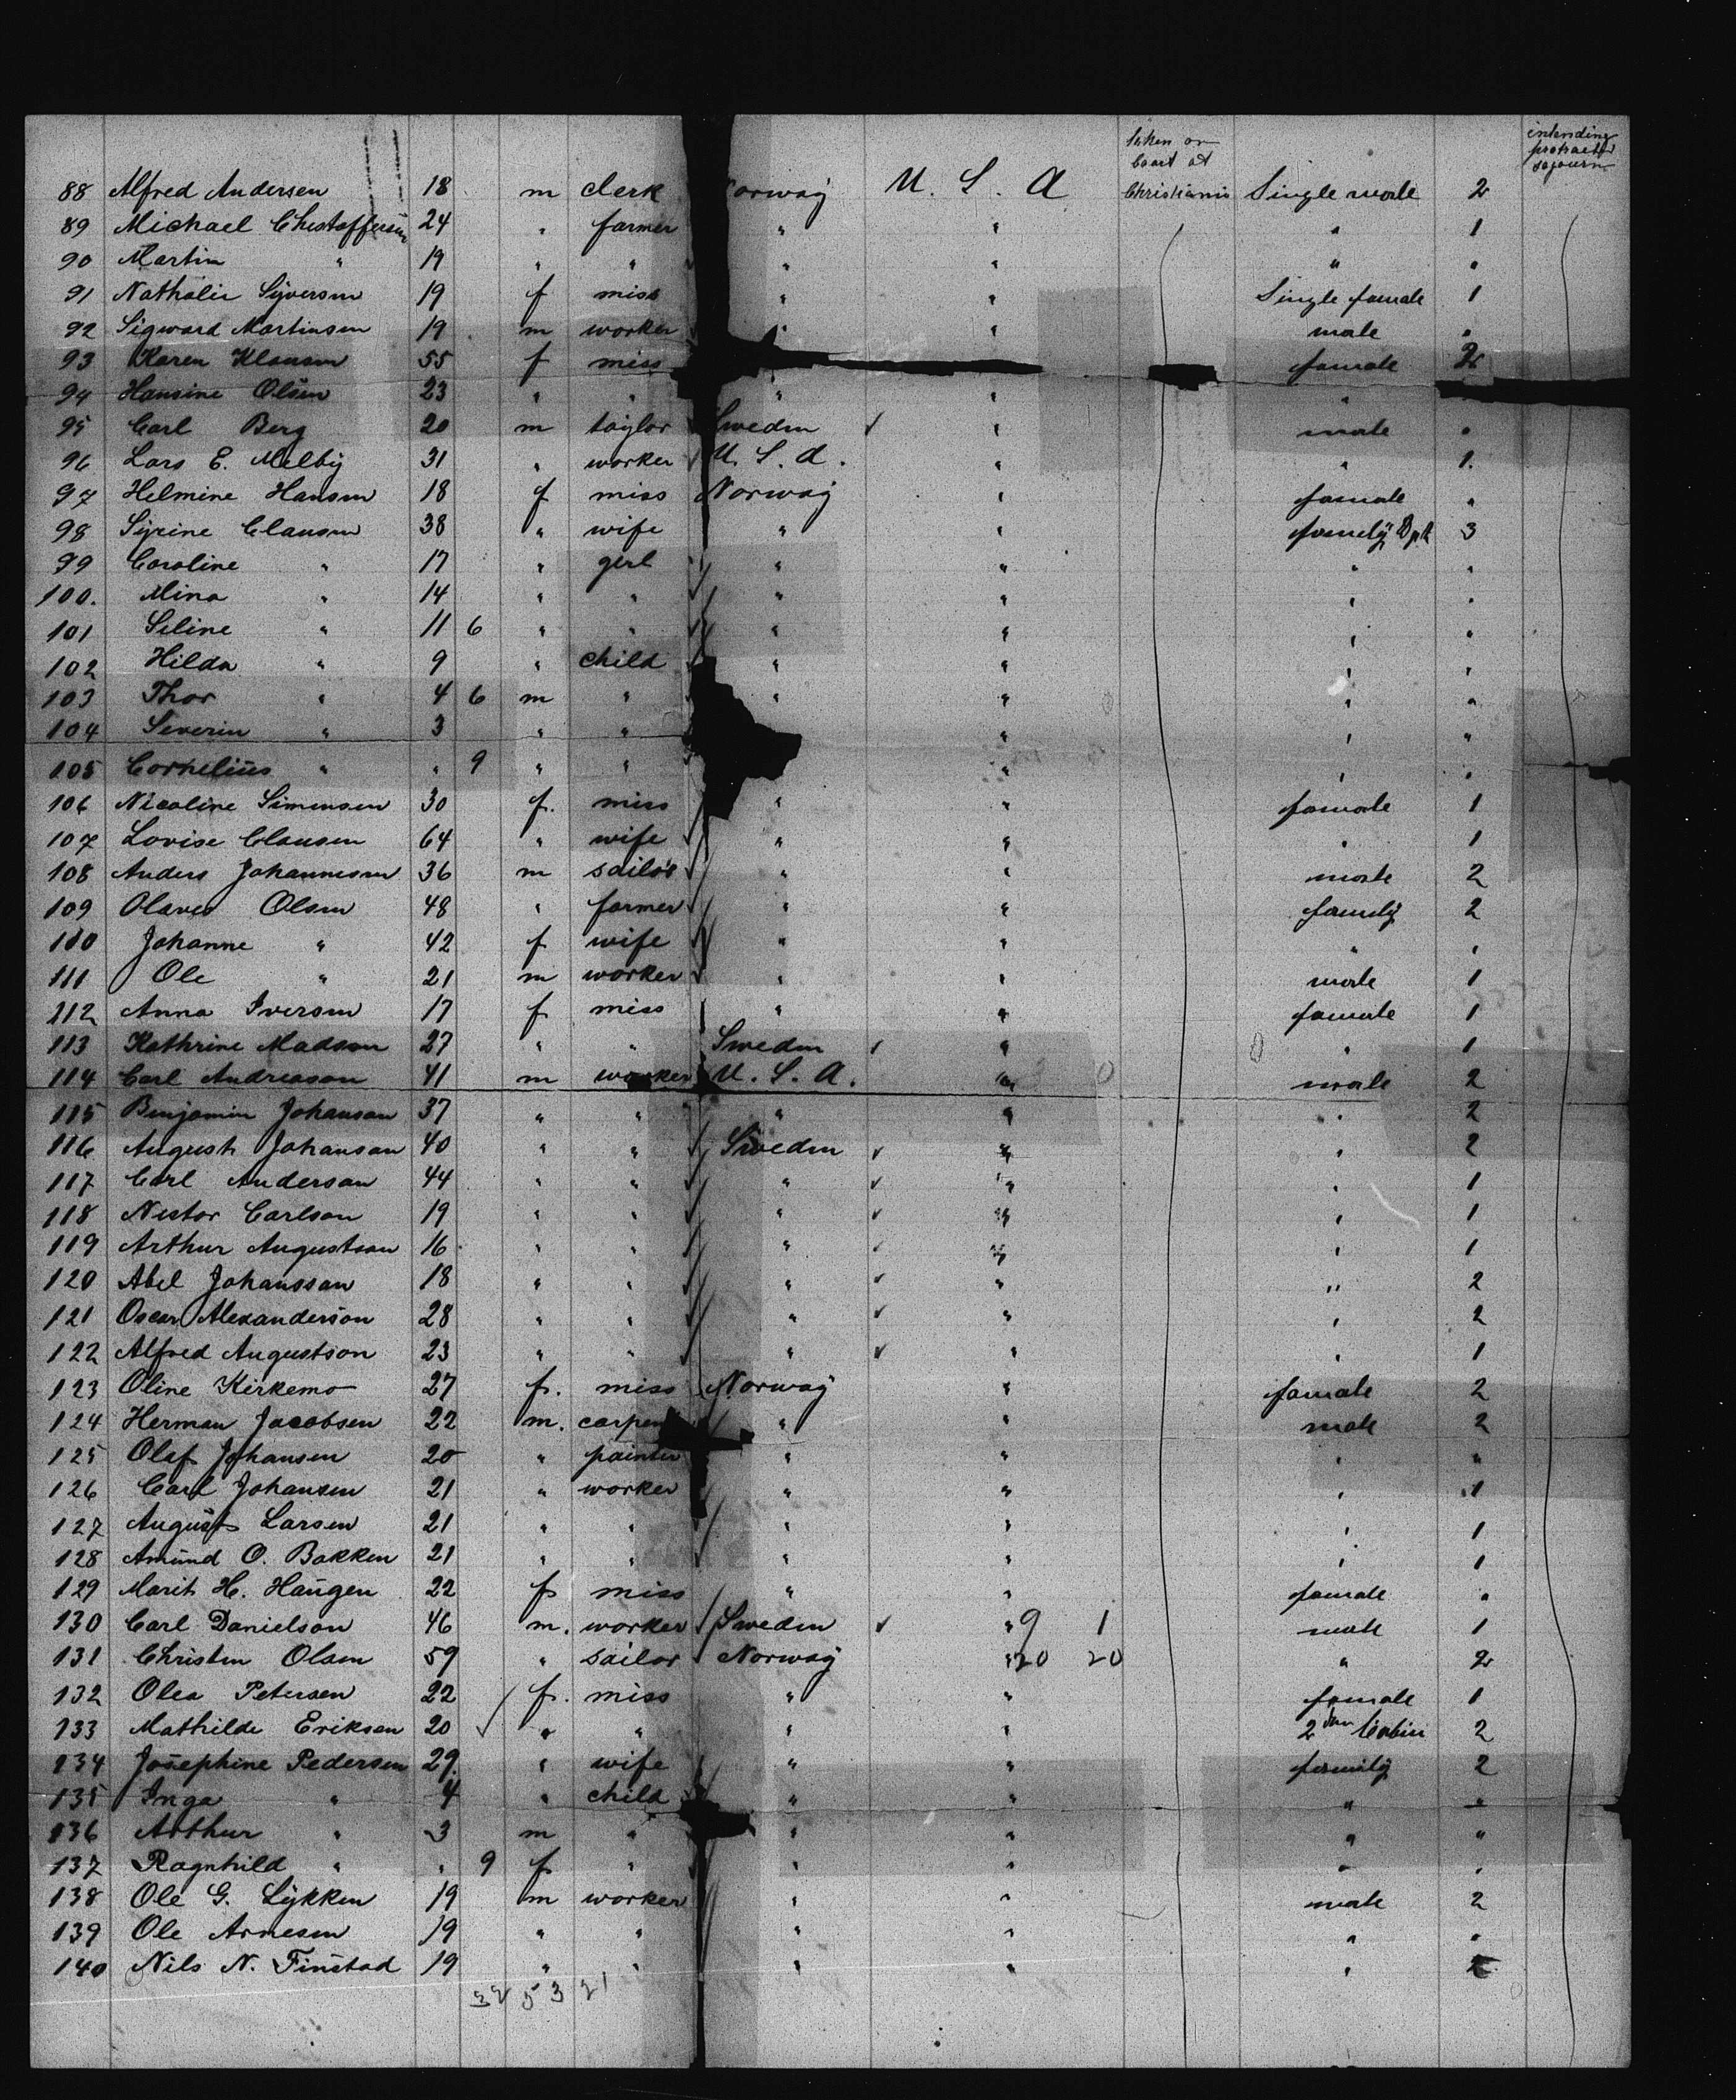 taken on intending
board at protracted
sojourn
88 Alfred Andersen 18 m clerk orway U. S. A Christiania Single male 2
89 Michael Chestoffersen 24 " farmer " " " 1
90 Martin " 19 " " " " " "
91 Nathalie Syversen 19 f miss " " Single female 1
92 Sigward Martinsen 19 m worker " " male "
93 Karen Klausen 55 f miss " female 2
94 Hansine Olsen 23 " " " " "
95 Carl Berg 20 m taylor Sweden ✓ " male "
96 Lars E. Melby 31 " worker U. S. A. " " 1.
97 Helmine Hansen 18 f miss Norway " female "
98 Syrine Clausen 38 " wife " " family 3
99 Caroline " 17 " gerl " " " "
100. Mina " 14 " " " " " "
101 Seline " 11 6 " " " " " "
102 Hilda " 9 " child " " " "
103 Thor " 4 6 m " " " " "
104 Severin " 3 " " " " "
105 Cornelius " " 9 " " " " "
106 Nicoline Simensen 30 f. miss " " female 1
107 Lovise Clausen 64 " wife " " " 1
108 Anders Johannesen 36 m sailor " " male 2
109 Olaves Olsen 48 " farmer " " family 2
110 Johanne " 42 f wife " " " "
111 Ole " 21 m worker " " male 1
112 Anna Iversen 17 f miss " " female 1
113 Kathrine Madsen 27 " " Sweden ✓ " " 1
114 Carl Andreasson 41 m worker U. S. A. " male 2
115 Benjamin Johanson 37 " " " " " 2
116 August Johanson 40 " " Sweden ✓ " " 2
117 Carl Anderson 44 " " " ✓ " " 1
118 Nestor Carlson 19 " " " ✓ " " 1
119 Arthur Augustson 16 " " " ✓ " " 1
120 Abel Johansson 18 " " " ✓ " " 2
121 Oscar Alexanderson 28 " " " ✓ " " 2
122 Alfred Augustson 23 " " " ✓ " " 1
123 Oline Kirkemo 27 f. miss Norway " female 2
124 Herman Jacobsen 22 m. carpen " " male 2
125 Olaf Johansen 20 " painter " " " "
126 Carl Johansen 21 " worker " " " 1
127 August Larsen 21 " " " " " 1
128 Amund O. Bakken 21 " " " " " 1
129 Marit H. Haugen 22 f miss " " female "
130 Carl Danielson 46 m. worker Sweden ✓ " 9 1 male 1
131 Christen Olsen 59 " sailor Norway " 20 20 " 2
132 Olea Petersen 22 f. miss " " female 1
133 Mathilde Eriksen 20 ✓ " " " " 2 Cabin 2
134 Josephine Pedersen 29. " wife " " family 2
135 Inga " 4 " child " " " "
136 Arthur " 3 m " " " " "
137 Ragnhild " " 9 f " " " " "
138 Ole G. Lykken 19 m worker " " male 2
139 Ole Arnesen 19 " " " " " "
140 Nils N. Finstad 19 " " " " " 2
32 53 21